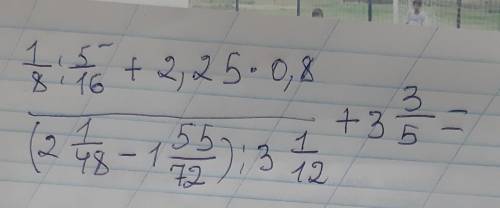 1/8 : 5/16 + 2,25 · 0,8
(2 1/48 - 1 55/72) : 3 1/12 + 3 3/5 =